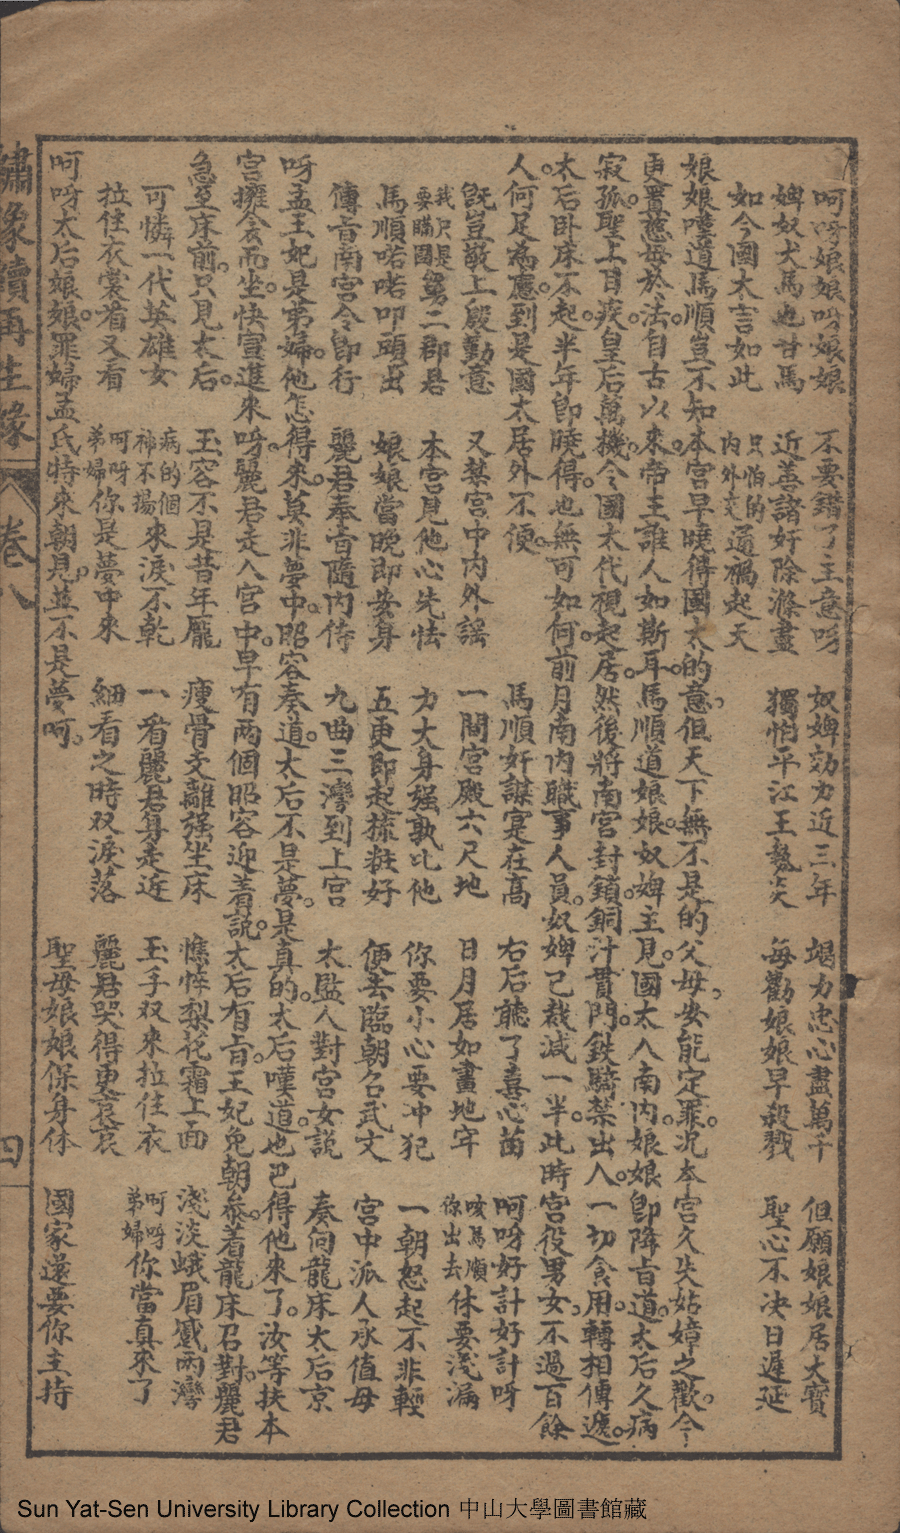 呵呀娘娘呀娘娘　不要錯了主意呀　奴婢効力近三年　竭力忠心盡萬千　但願娘娘居大寶
婢奴犬馬也甘馬　近善諸奸除滌盡　獨怕平江王勢炎　每勸娘娘早殺戮　聖心不决日遲延
如今國太言如此　只怕的內外交通禍起天
娘娘嘆道馬順豈不知本宮早曉得國太的意但天下無不是的父母安能定罪况本宮久失姑嫜之歡今
更置慈母於法自古以來帝王誰人如斯耳馬順道娘娘奴婢主見國太入南內娘娘即降旨道太后久病
寂孤聖上目疾皇后萬機令國太代視起居然後將南宮封鎖銅汁貫門鉄騎禁出入一切食用轉相傳遞
太后卧床不起半年即曉得也無可如何前月南內職事人員奴婢已裁減一半此時宮役男女不過百餘
人何足為慮到是國太居外不便
既豈敢上殿勤意　又禁宮中內外謡　馬順奸謀寔在高　右后聽了喜心茵　呵呀好計好計呀
我只是要瞞國舅二郡君　本宮見他心先怯　一間宮殿六尺地　日月居如畫地牢　咳馬順你出去休要淺漏
馬順喏喏叩頭出　娘娘當晚即安身　力大身强孰比他　你要小心要冲犯　一朝怒起不非輕
傳旨南宮令即行　麗君奉旨隨內侍　五更即起梳粧好　便去臨朝召武文　宮中派人承值母
九曲三灣到上宮　太監人對宮女説　奏向龍床太后京
呀孟王妃是弟婦他怎得來莫非夢中昭容奏道太后不是夢是真的太后嘆道也巴得他來了汝等扶本
宮擁衾而坐快宣進來呀麗君走入宮中早有兩個昭容迎着説太后有旨王妃免朝叅着龍床召對麗君
急至床前只見太后　玉容不是昔年龐　瘦骨支離强坐床　憔悴梨花霜上面　淺淡蛾眉蹙兩灣
可憐一代英雄女　病的個神不揚來淚不乾　一看麗君身走近　玉手双來拉住衣　呵呀弟婦你當真來了
拉住衣裳看又看　呵呀弟婦你是夢中來　細看之時双淚落　麗君哭得更哀哀
呵呀太后娘娘罪婦孟氏特來朝見並不是夢呵　聖母娘娘保身休　國家還要你主持
繡像續再生緣　卷八　四
Sun Yat-Sen University Library Collection 中山大學圖書館藏